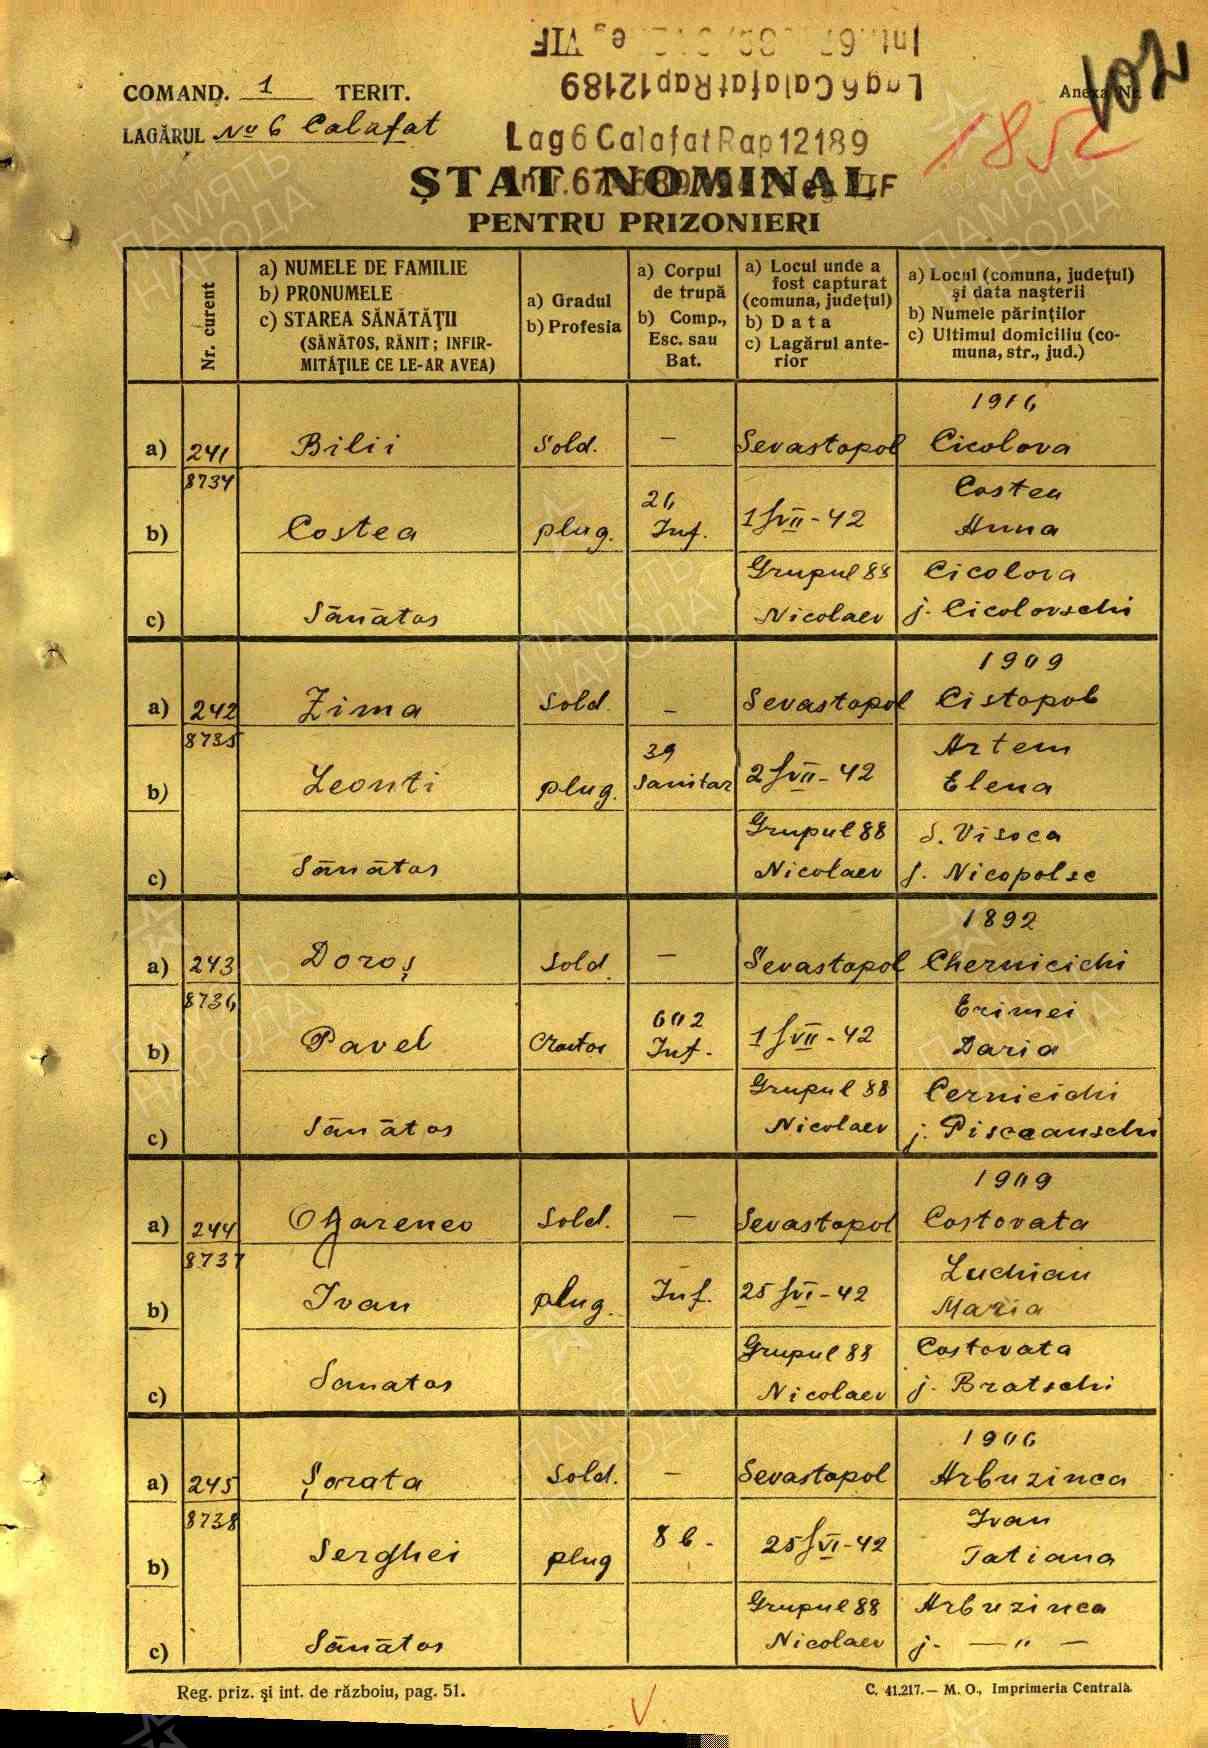 Lag6CalafatRap12189
102
COMAND. 1 TERIT.
Anexa Nr.
LAGĂRUL No 6 Calafat
1852
Lag6CalafatRap12189
ȘTAT NOMINAL
PENTRU PRIZONIERI
Nr. curent
a) NUMELE DE FAMILIE
b) PRONUMELE
c) STAREA SĂNĂTĂȚII
(SĂNĂTOS, RĂNIT; INFIR-
MITĂȚILE CE LE-AR AVEA)
a) Gradul
b) Profesia
a) Corpul
de trupă
b) Comp.,
Esc. sau
Bat.
a) Locul unde a
fost capturat
(comuna, județul)
b) Data
c) Lagărul ante-
rior
a) Locul (comuna, județul)
și data nașterii
b) Numele părinților
c) Ultimul domiciliu (co-
muna, str., jud.)
1916
a) 241 Bilii Sold. — Sevastopol Cicolova
8734
b) Costea plug. 26 Inf. 1/VII-42 Costea
Anna
c) Sănătos Grupul 88 Cicolova
Nicolaev j. Cicolovschi
1909
a) 242 Zima Sold. — Sevastopol Cistopob
8735
b) Leonti plug. 39 Sanitar 2/VII-42 Artem
Elena
c) Sănătos Grupul 88 s. Visoca
Nicolaev j. Nicopolsc
1892
a) 243 Doroș Sold. — Sevastopol Chernicichi
8736
b) Pavel 602 Inf. 1/VII-42 Erimei
Daria
c) Sănătos Grupul 88 Cernicichi
Nicolaev j. Pisceanschi
1909
a) 244 Sold. — Sevastopol Costovata
8737
b) Ivan plug. Inf. 25/VI-42 Luchian
Maria
c) Sanatos Grupul 88 Costovata
Nicolaev j. Bratschi
1906
a) 245 Șorata Sold. — Sevastopol Arbuzinca
8738
b) Serghei plug 8 b. 25/VI-42 Ivan
Tatiana
c) Sănătos Grupul 88 Arbuzinca
Nicolaev j. — " —
Reg. priz. și int. de războiu, pag. 51.
C. 41.217.— M. O., Imprimeria Centrală.
V
ПАМЯТЬ
НАРОДА